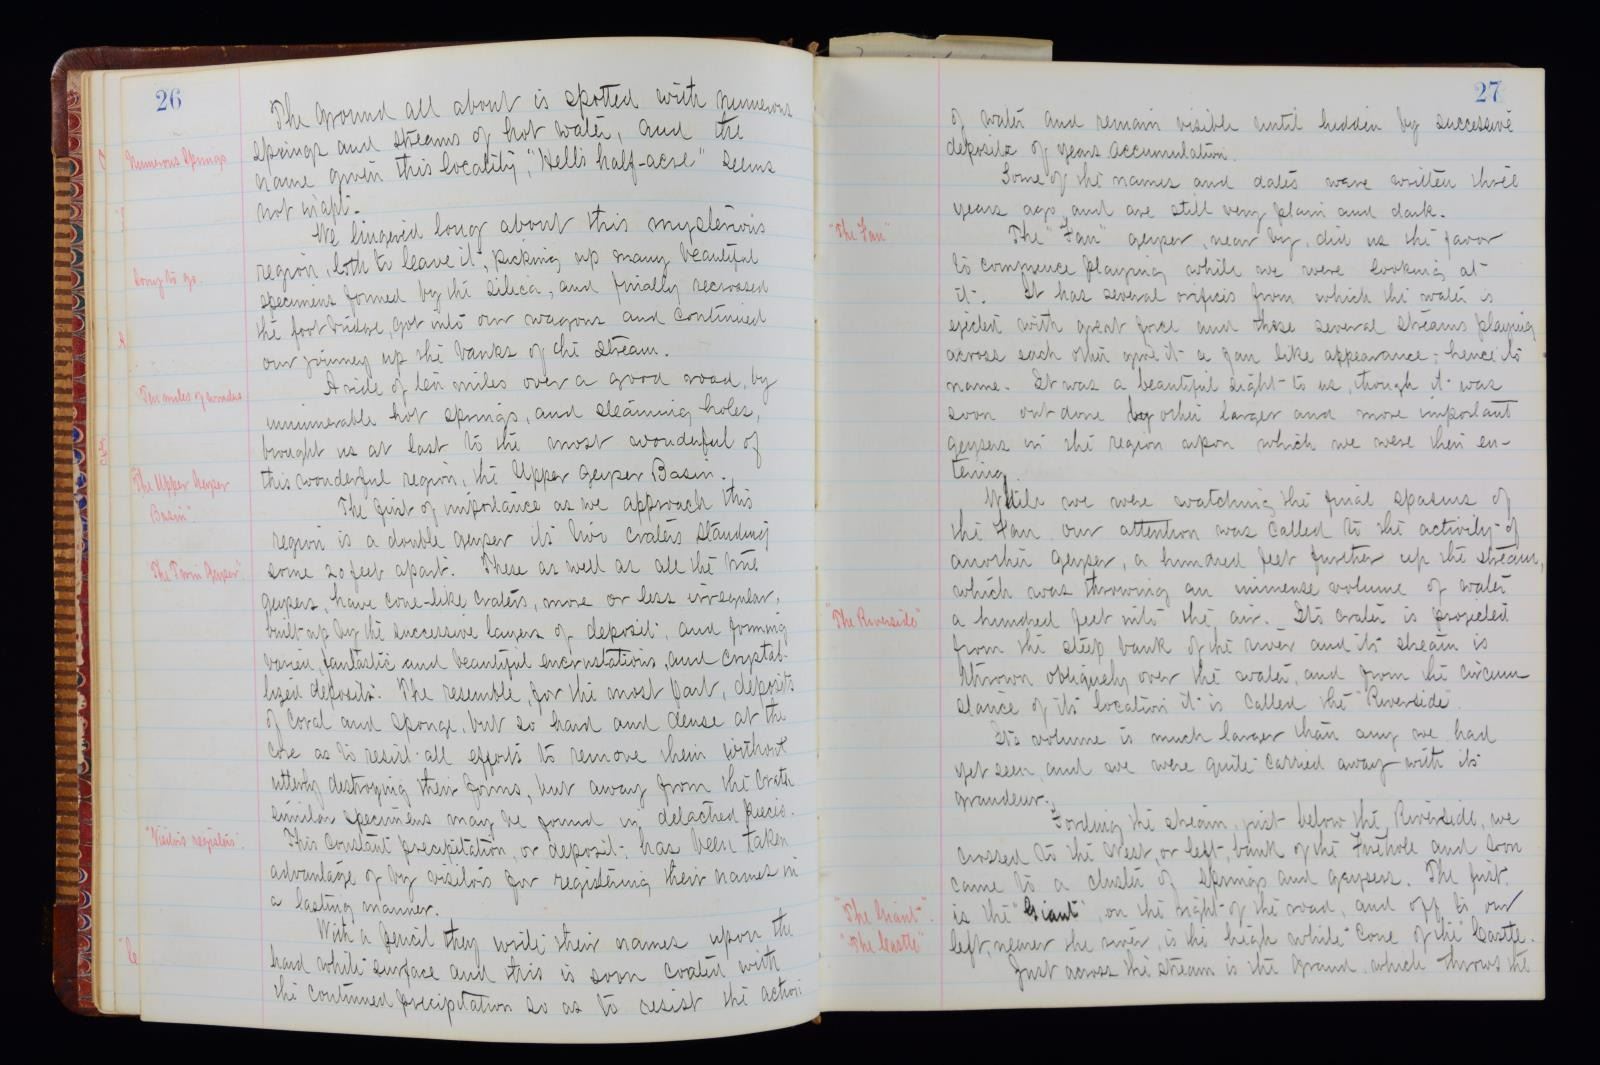 26
The ground all about is spotted with numerous
Numerous Springs
springs and streams of hot water, and the
name given this locality, "Hell's half-acre" seems
not inapt.
We lingered long about this mysterious
region, loth to leave it, picking up many beautiful
Sorry to go.
specimens formed by the silica, and finally recrossed
the foot bridge, got into our wagons and continued
our journey up the banks of the stream.
A ride of ten miles over a good road, by
Ten miles of wonders
innumerable hot springs, and steaming holes,
brought us at last to the most wonderful of
this wonderful region, the Upper Geyser Basin.
"The Upper Geyser
Basin"
The first of importance as we approach this
region is a double geyser its two craters standing
"The Twin Geyser"
some 20 feet apart. These as well as all the true
geysers, have cone-like craters, more or less irregular,
built up by the successive layers of deposit, and forming
varied, fantastic and beautiful encrustations, and crystal-
lized deposits. The resemble, for the most part, deposits
of coral and sponge, but so hard and dense at the
core as to resist all efforts to remove them without
utterly destroying their forms, but away from the crater
similar specimens may be found in detached pieces.
"Visitors registers".
This constant precipitation, or deposit, has been taken
advantage of by visitors for registering their names in
a lasting manner.
With a pencil they write their names upon the
hard white surface and this is soon coated with
the continued precipitation so as to resist the action
27
of water and remain visible until hidden by successive
deposits of years accumulation.
Some of the names and dates were written three
years ago, and are still very plain and dark.
"The Fan"
The "Fan" geyser, near by, did us the favor
to commence playing while we were looking at
it. It has several orifices from which the water is
ejected with great force and these several streams playing
across each other give it a fan like appearance; hence its
name. It was a beautiful sight to us, though it was
soon outdone by other larger and more important
geysers in the region upon which we were then en-
tering.
While we were watching the final spasms of
the Fan our attention was called to the activity of
another geyser, a hundred feet further up the stream,
which was throwing an immense volume of water
"The Riverside"
a hundred feet into the air. Its crater is projected
from the steep bank of the river and its stream is
thrown obliquely over the water, and from the circum
stance of its location it is called the "Riverside".
Its volume is much larger than any we had
yet seen, and we were quite carried away with its
grandeur.
Fording the stream, just below the Riverside, we
crossed to the West, or left, bank of the Firehole and soon
came to a cluster of springs and geysers. The first
"The Giant".
is the "Giant", on the right of the road, and off to our
"The Castle"
left, nearer the river, is the high white cone of the "Castle.
Just across the stream is the Grand which throws the